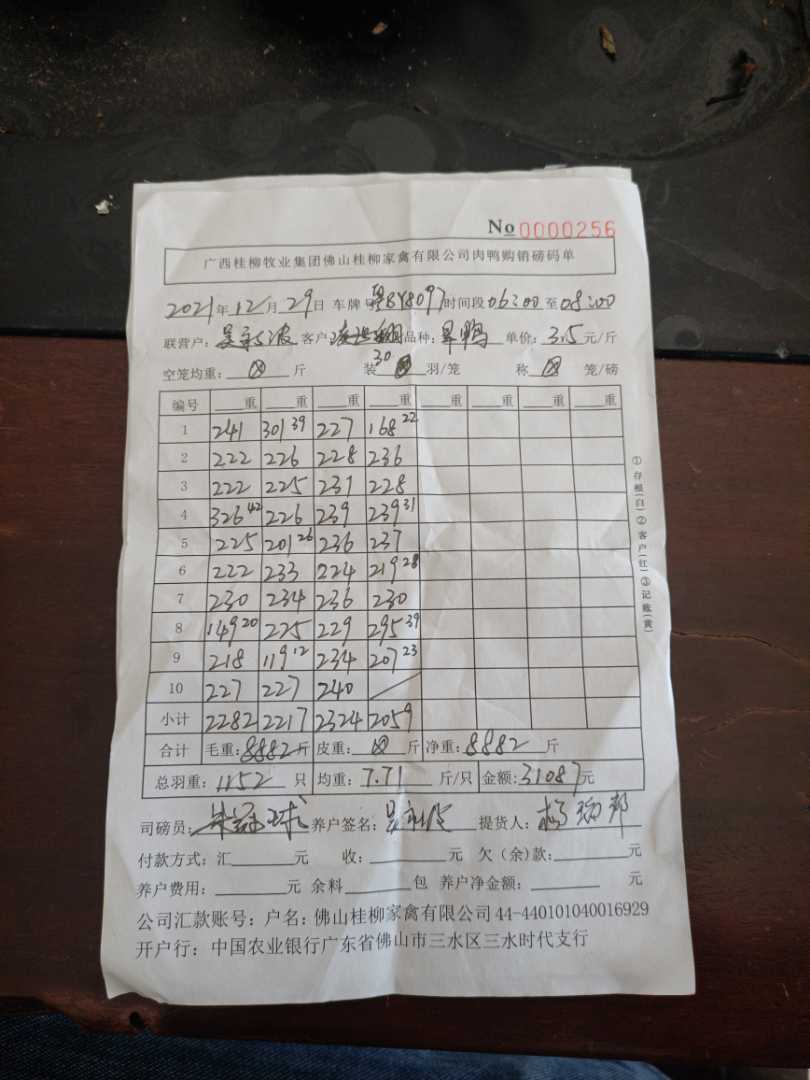 No 0000256
广西桂柳牧业集团佛山桂柳家禽有限公司肉鸭购销磅码单
2021年12月29日 车牌号 粤8Y8097 时间段 06:00 至 08:00
联营户: 客户 品种: 旱鸭 单价: 3.5 元/斤
空笼均重: 斤 装 30 羽/笼 称 笼/磅
编号 重 重 重 重 重 重 重 重
1 241 301 39 227 168 22
2 222 226 228 236
3 222 225 231 228
4 326 42 226 239 239 31
5 225 201 26 236 237
6 222 233 224 219 28
7 230 234 236 230
8 149 20 225 229 295 39
9 218 119 12 234 207 23
10 227 227 240
小计 2282 2217 2324 2059
合计 毛重: 8882 斤 皮重: 斤 净重: 8882 斤
总羽重: 1152 只 均重: 7.71 斤/只 金额: 31087 元
司磅员: 养户签名: 提货人:
付款方式: 汇 元 收: 元 欠(余)款: 元
养户费用: 元 余料 包 养户净金额: 元
公司汇款账号: 户名: 佛山桂柳家禽有限公司 44-440101040016929
开户行: 中国农业银行广东省佛山市三水区三水时代支行
①存根(白)②客户(红)③记账(黄)